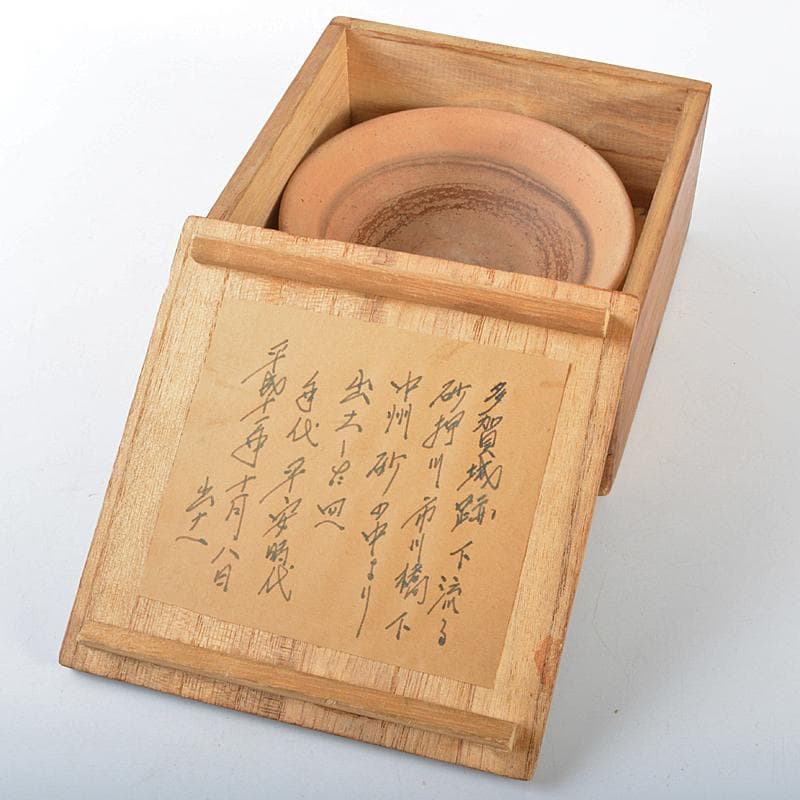 多賀城跡下流る
砂押川市川橋下
中州砂の中より
出土した
年代平安時代
平成十一年十月八日
出土